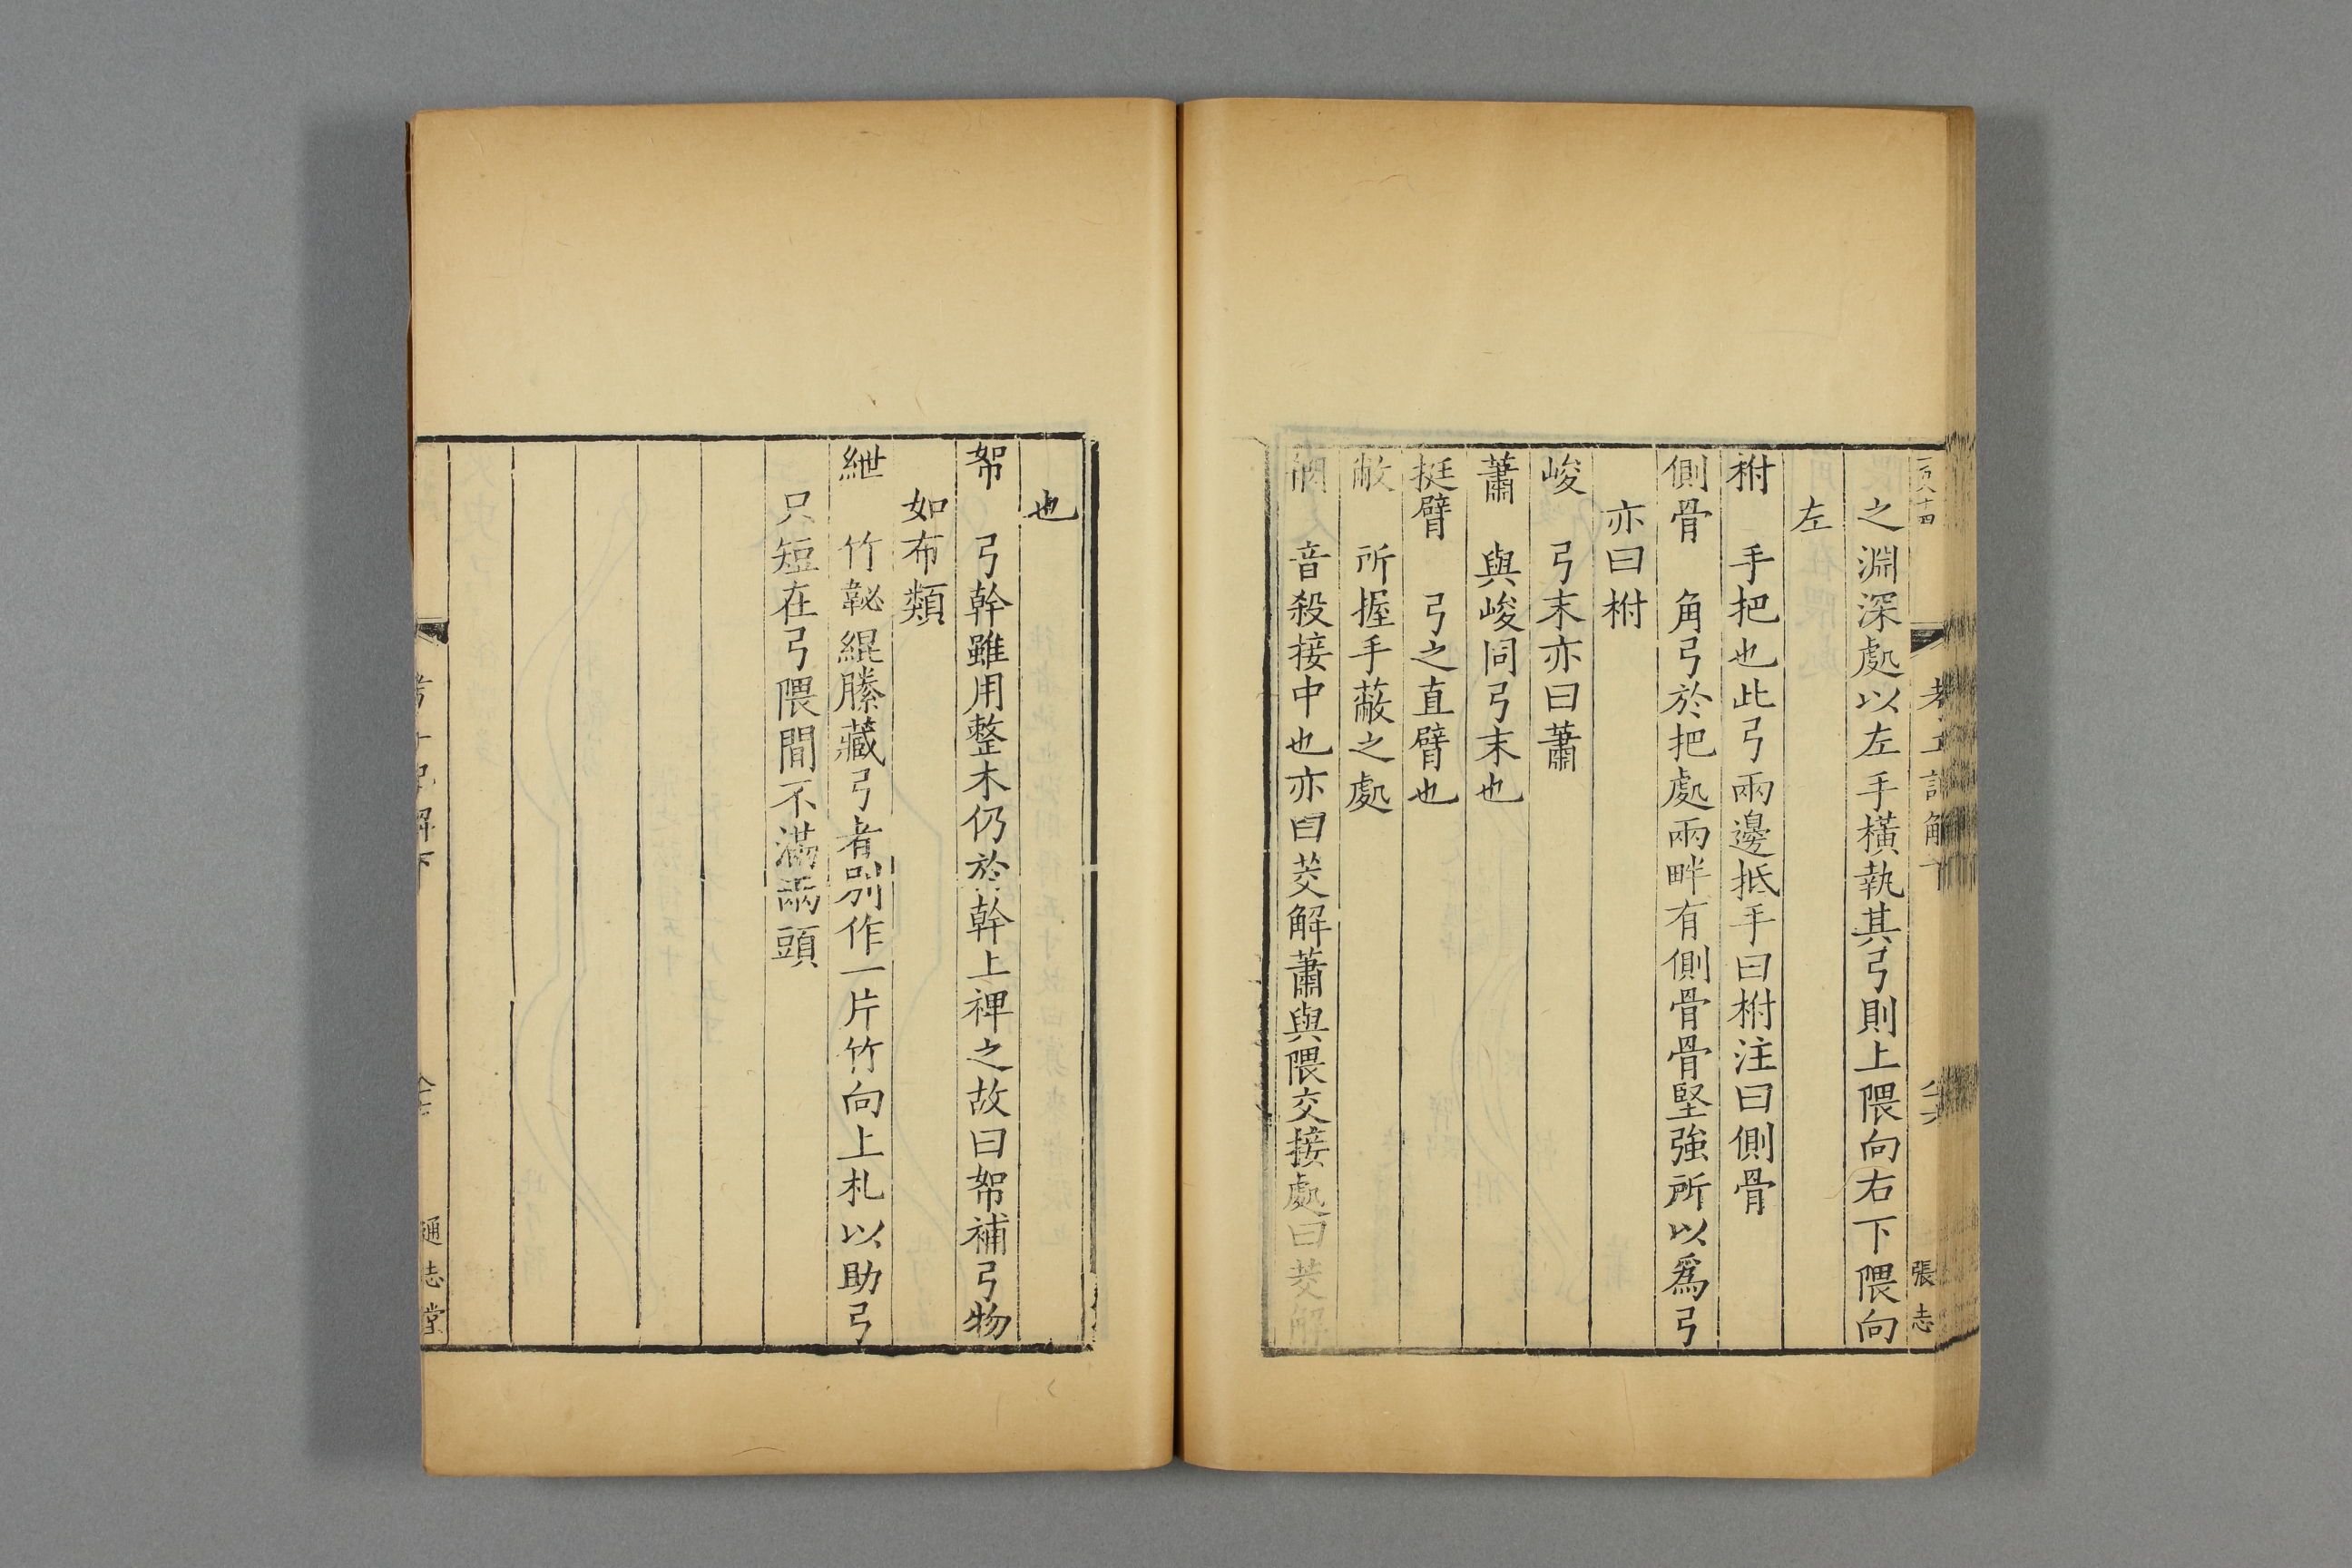 之淵深處以左手橫執其弓則上隈向右下隈向
左
柎 手把也此弓兩邊抵手曰柎注曰側骨
側骨 角弓於把處兩畔有側骨骨堅強所以爲弓
亦曰柎
峻 弓末亦曰蕭
蕭 與峻同弓末也
挺臂 弓之直臂也
敝 所握手蔽之處
音殺接中也亦曰茭解蕭與隈交接處曰茭解
也
帤 弓幹雖用整木仍於幹上裨之故曰帤補弓物
如布類
紲 竹䪐緄縢藏弓者別作一片竹向上札以助弓
只短在弓隈間不滿兩頭
通志堂
張志